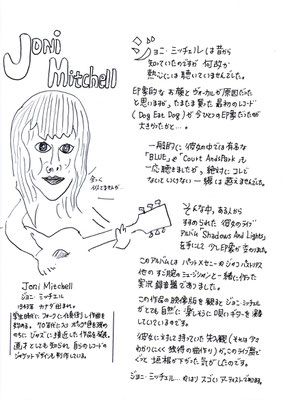 Joni
Mitchell
ジョニ・ミッチェルは昔から
知っていたのですが 何故か
熱心には聴いていませんでした。
印象的な お顔と ヴォーカルが 原因だった
と思いますが、たまたま買った 最初のレコード
(Dog Eat Dog) が 今ひとつの印象だったのが
大きかったと…。
一般的に 彼女の中では有名な
「BLUE」や「Court And Spark」も
一応 聴きましたが、絶対に コレで
なくては いけない 一線は 越えませんでした。
全く
似てませんが…
そんな中、ある人から
すすめられた 彼女のライブ
アルバム「Shadows And Light」
を手にして 少し印象が変わりました。
このアルバムは パット・メセニーや ジャコ・パストリアス
他の すご腕の ミュージシャンと 一緒に作った
実況録音盤で ありました。
この作品の 映像版を 観ると ジョニ・ミッチェル
が とても自然に 楽しそうに 唄い ギターを 演奏
していているのです。
彼女に対して 持っていた 先入観 (それは
わかりにくく 独特の曲作り) が、このライブ盤で
ぐっと 垣根が 下がった 気がしたのです。
ジョニ・ミッチェル… やはり スゴイ アーティストであります。
Joni Mitchell
ジョニ・ミッチェル
1943年 カナダ生まれ。
学生時代に フォークシンガー 作曲を
始める。
のちに ジャズに 接近した 作品を 発表。
画才としても 知られ 自らの レコードの
ジャケットデザインも 制作している。